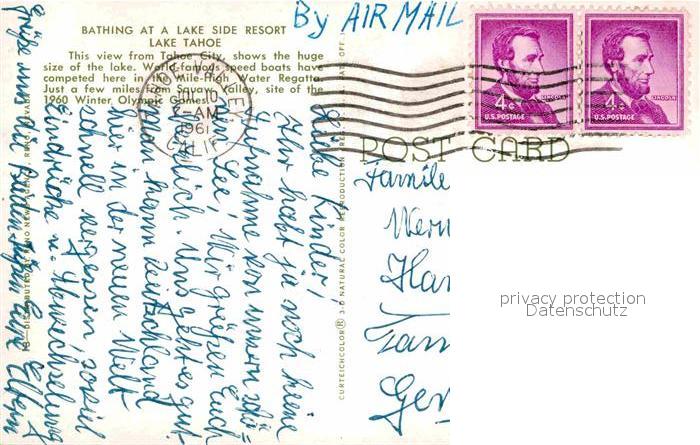 BATHING AT A LAKE SIDE RESORT
LAKE TAHOE
This view from Tahoe City, shows the huge
size of the lake. World-famous speed boats have
competed here in the Mile-High Water Regatta.
Just a few miles from Squaw Valley, site of the
1960 Winter Olympic Games.
By AIR MAIL
JUL 10
AM
1961
CALIF.
4¢
LINCOLN
U.S. POSTAGE
4¢
LINCOLN
U.S. POSTAGE
POST CARD
CURTEICHCOLOR® 3-D NATURAL COLOR REPRODUCTION
Liebe Kinder!
Ihr habt ja noch keine
Wir grüßen Euch
herzlich. Uns geht es gut.
Man kann Deutschland
hier in der neuen Welt
schnell vergessen, soviel
Eindrücke u. Abwechselung
Eure Eltern
Familie
Wern
Han
Ger
privacy protection
Datenschutz